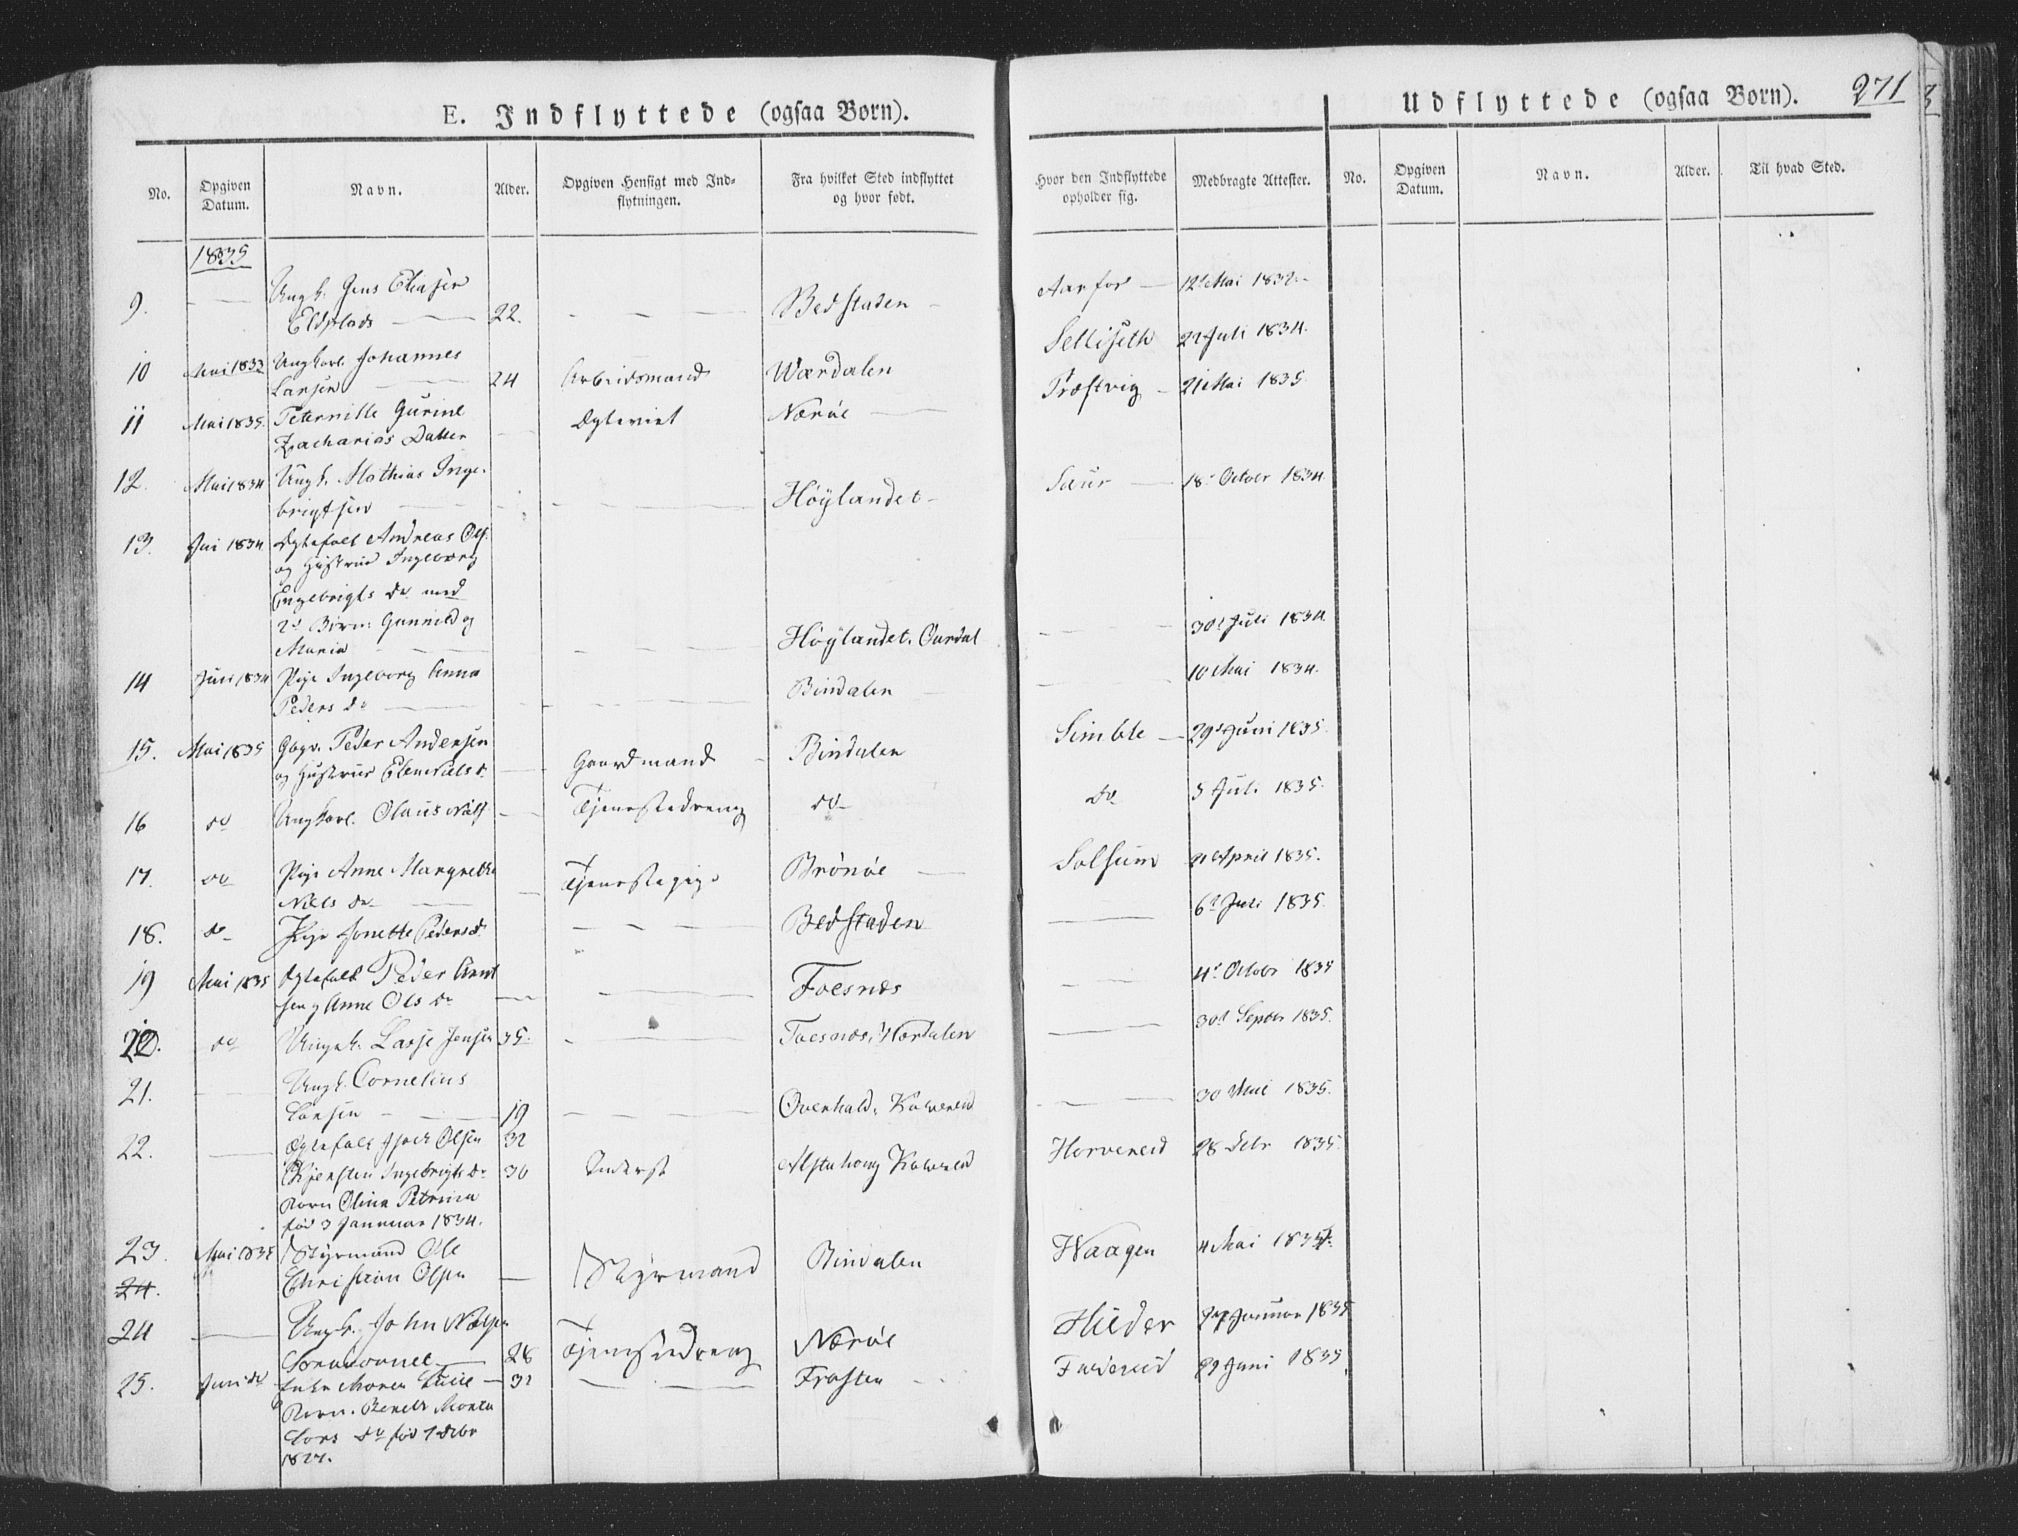 271
E. Indflyttede (ogsaa Børn).
Udflyttede (ogsaa Børn).
No. Opgiven Datum. Navn. Alder. Opgiven Hensigt med Indflytningen. Fra hvilket Sted indflyttet og hvor født. Hvor den Indflyttede opholder sig. Medbragte Attester. No. Opgiven Datum. Navn. Alder. Til hvad Sted.
1835
9. Ungk. Jens Eliasen
22. Bedstaden Aarfor 12 Mai 1832
Selliseth 22 Juli 1834.
10 Mai 1833 Ungkarl Johannes
Larsen 24 Arbeidsmand Værdalen Præstvig 21 Mai 1835
11 Mai 1835. Peternille Gurine Nærøe
Zacharias Datter
12. Mai 1834 Ungk. Mathias Inge-
brigtsen Høylandet 18 October 1834
13. Juni 1834 Ægtefolk Andreas Ols.
og Hustrue Ingeborg
Engebrigts dr med
2 Børn: Gunnild og
Maria Høylandet 30 Juli 1834
14 Juli 1834 Pige Ingeborg Anna 10 Mai 1834.
Peders dr Bindalen
15. Mai 1835 Peder Andersen
og Hustrue Elen Niels d. Gaardmand Bindalen Simble 29 Juni 1835
16 do Ungkarl. Olaus Tjenestedreng do do 5 Juli 1835
17. do Pige Anne Margrethe
Niels dr Tjenestepige Brønøe Solsum 21 April 1835.
18. do Pige Jonette Peders d. Bedstaden 6 Juli 1835
19 Mai 1835 Ægtefolk Peder Arnt
sen og Anne Ols dr Foesnæs 4 October 1835
20. do Ungk. Lasse Jensen 35 Foesnæs, Værdalen 30 Septbr 1835.
21. Ungk. Cornelius
Larsen 19 Overhald, Kolvereid 30 Mai 1835.
22. Ægtefolk Olsen 32
Kjersten Ingebrigts dr 30 Inderst Alstahoug Kolvereid Horvereid 28 Debr 1835
Barn Olina Petrina
fød 3 Januar 1834.
23. Mai 1835 Styrmand Ole
24. Christian Olsen Styrmand Bindalen Waagen 4 Mai 1835
24 Ungk. John Nielsen
28 Tjenestedreng Nærøe Hilder Januar 1835
25. Juni do Enke Maren 32 Frosten 29 Juni 1835
Barn.
Lars dr fød 1 Debr